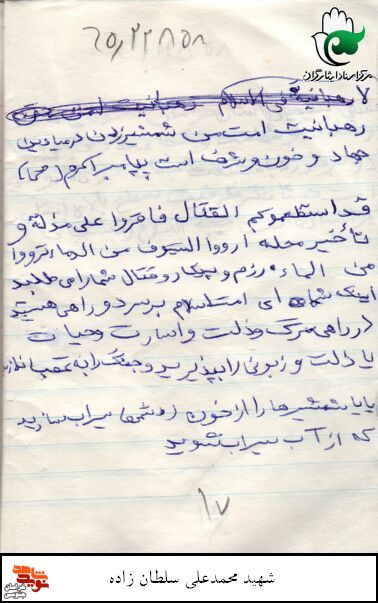 ۲۵,۲۲۸۵۸
مرکز اسناد ایثارگران
لا رهبانیة فی الاسلام رهبانیت
رهبانیت امت من شمشیر زدن در میادین
جهاد و خون و شرف است پیامبر اکرم (ص)
قد استطعموکم القتال فاقروا علی مذلة و
تأخیر محله او رووا السیوف من الدماء ترووا
من الماء رزم و پیکار و قتال شما را می طلبد
اینک شما ای امت اسلام بر سر دو راهی هستید
در راهی مرگ و ذلت و اسارت و حیات
یا ذلت و زبونی را بپذیرید و جنگ را به عقب اندازید
یا با شمشیرها را از خون دشمن سیراب سازید
که از آب سیراب شوید
۱۷
نوید شاهد
خراسان جنوبی
شهید محمدعلی سلطان زاده